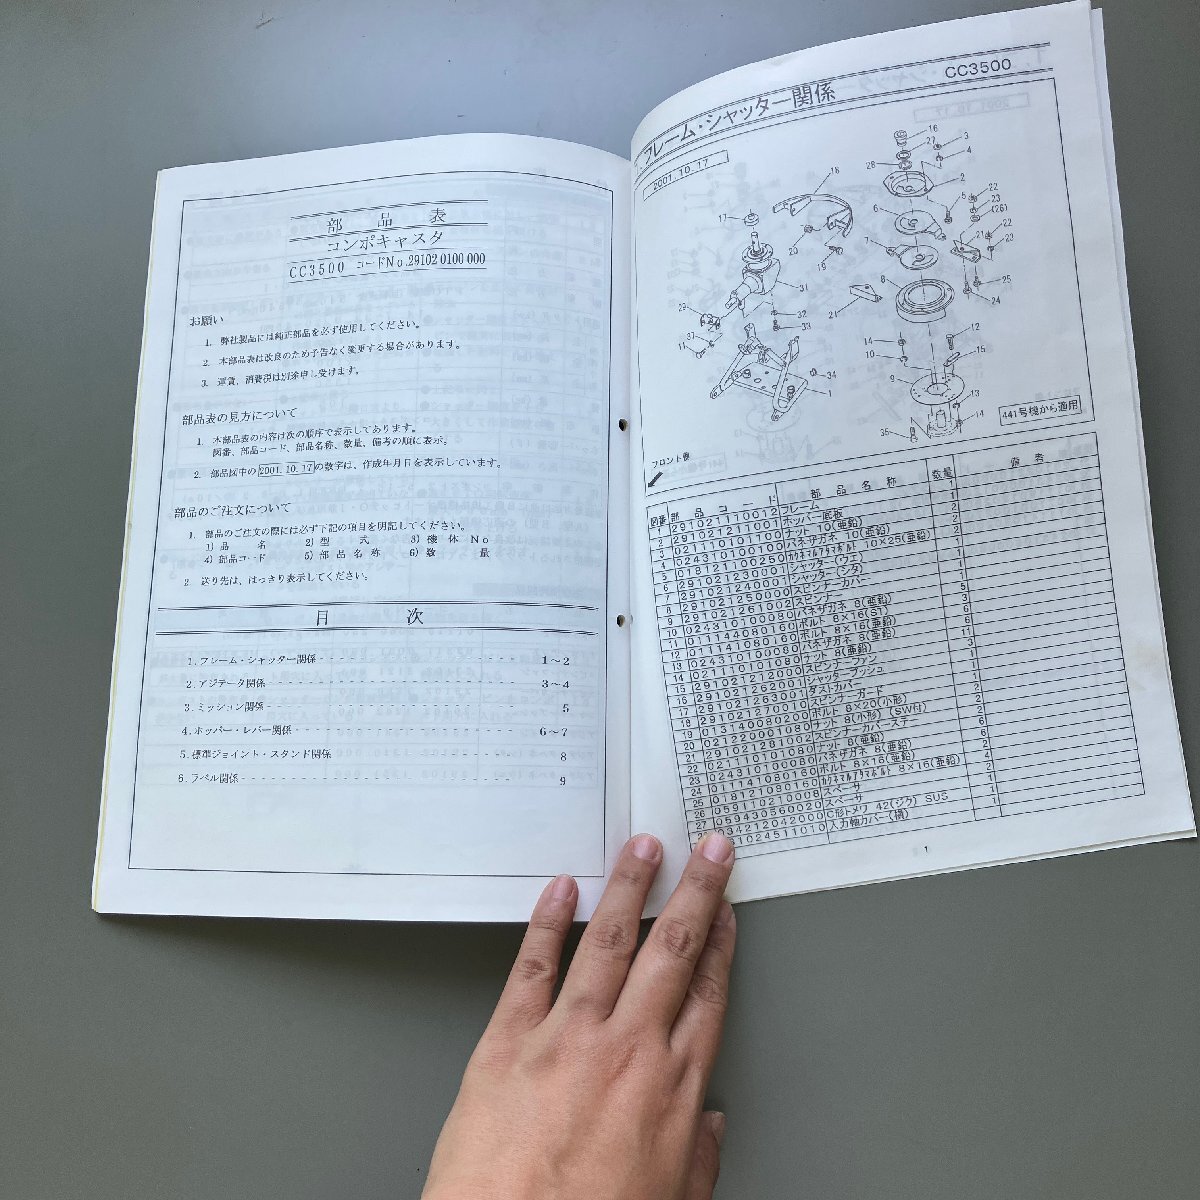 部品表
コンポキャスタ
CC3500 コードNo.29102 0100 000
お願い
1. 弊社製品には純正部品を必ず使用してください。
2. 本部品表は改良のため予告なく変更する場合があります。
3. 運賃、消費税は別途申し受けます。
部品表の見方について
1. 本部品表の内容は次の順序で表示してあります。
図番、部品コード、部品名称、数量、備考の順に表示。
2. 部品図中の 2001.10.17 の数字は、作成年月日を表示しています。
部品のご注文について
1. 部品のご注文の際には必ず下記の項目を明記してください。
1) 品名 2) 型式 3) 機体No
4) 部品コード 5) 部品名称 6) 数量
2. 送り先は、はっきり表示してください。
目次
1.フレーム・シャッター関係 1〜2
2.アジテータ関係 3〜4
3.ミッション関係 5
4.ホッパー・レバー関係 6〜7
5.標準ジョイント・スタンド関係 8
6.ラベル関係 9
CC3500
フレーム・シャッター関係
2001.10.17
441号機から適用
フロント側
図番 部品コード 部品名称 数量 備考
1 291021110012 フレーム 1
2 291021211001 ホッパー底板 1
3 021110101100 ナット 10(亜鉛) 2
4 024310100100 バネザガネ 10(亜鉛) 2
5 018121100250 カクネマルアタマボルト 10×25(亜鉛) 2
6 291021230001 シャッター(ウエ) 1
7 291021240001 シャッター(シタ) 1
8 291021250000 スピンナーカバー 1
9 291021261002 スピンナー 1
10 024310100080 バネザガネ 8(亜鉛)
11 011144080160 ボルト 8×16(S1)
12 011141080160 ボルト 8×16(亜鉛)
13 024310100080 バネザガネ 8(亜鉛)
14 021110101080 ナット 8(亜鉛)
15 291021212000 スピンナーファン
16 291021262001 シャッターブッシュ
17 291021263001 ダストカバー
18 291021370010 スピンナーガード
19 013140080200 ボルト 8×20(小形)
20 021220001080 ナット 8(小形)(SW付)
21 291021281002 スピンナーカバーステー
22 021110101080 ナット 8(亜鉛)
23 024310100080 バネザガネ 8(亜鉛)
24 011141080160 ボルト 8×16(亜鉛)
25 018121080160 カクネマルアタマボルト 8×16(亜鉛)
26 059110210008 スペーサ
27 059430560020 スペーサ
034212042000 C形トメワ 42(ジク) SUS
1024511010 入力軸カバー(横)
1